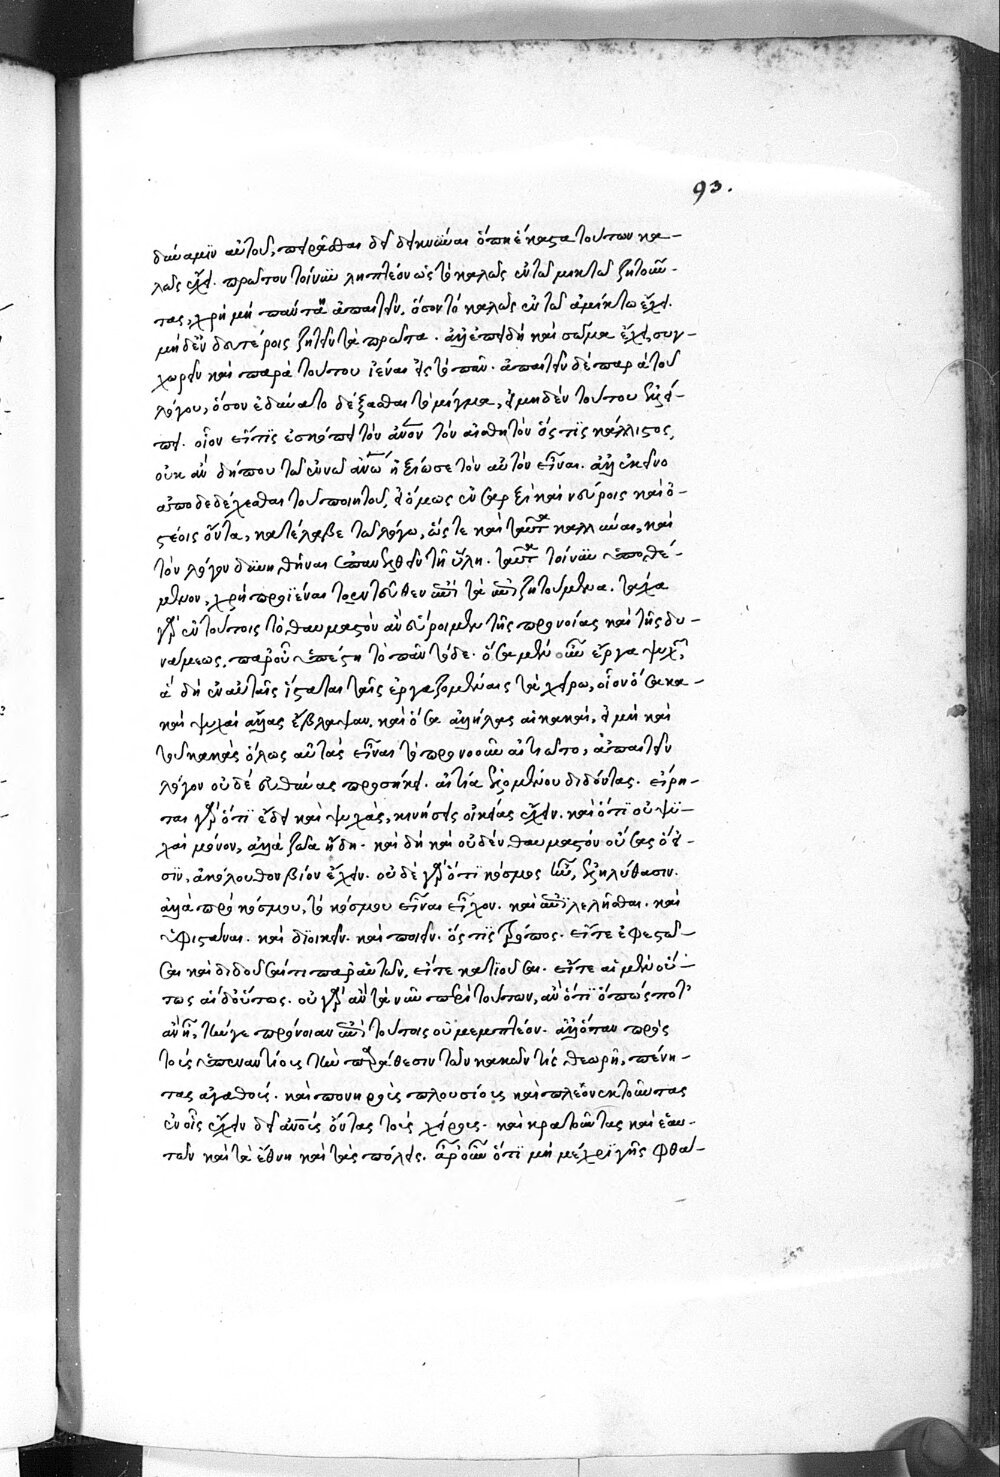 93.
δύναμιν αὐτοῦ, πειρᾶσθαι δὲ δεικνύναι ὅπη ἕκαστα τούτων κα-
λῶς ἔχει. πρῶτον τοίνυν ληπτέον ὡς τὸ καλῶς ἐν τῷ μικτῷ ζητοῦν-
τας, χρὴ μὴ πάντη ἀπαιτεῖν, ὅσον τὸ καλῶς ἐν τῷ ἀμίκτω ἔχει.
μὴδ' ἐν δευτέροις ζητεῖν τὰ πρῶτα. ἀλλ' ἐπειδὴ καὶ σῶμα ἔχει, συγ-
χωρεῖν καὶ παρὰ τούτου ἰέναι εἰς τὸ πᾶν. ἀπαιτεῖν δὲ παρὰ τοῦ
λόγου, ὅσον ἐδύνατο δέξασθαι τὸ μίγμα, εἰ μηδὲν τούτου ἐλλεί-
πει. οἷον εἴ τις ἐσκόπει τὸν ἄνον τὸν αἰσθητὸν ὅς τις κάλλιστος,
οὐκ ἂν δήπου τῷ ἐν νῷ ἀνω ἠξίωσε τὸν αὐτὸν εἶναι. ἀλλ' ἐκεῖνο
ἀποδεδέχθαι τοῦ ποιητοῦ, εἰ ὅμως ἐν σαρξὶ καὶ νεύροις καὶ ὀ-
στέοις ὄντα, κατέλαβε τῷ λόγω, ὥς τε καὶ ταῦτα καλλῦναι, καὶ
τὸν λόγον δυνηθῆναι ἐπανθεῖν τῇ ὕλῃ. ταῦτα τοίνυν ὑποθέ-
μενον, χρὴ προϊέναι τὸ ἐντεῦθεν ἐπὶ τὰ ἐπιζητούμενα. τάχα
γὰρ ἐν τούτοις τὸ θαυμαστὸν ἂν εὕροιμεν τῆς προνοίας καὶ τῆς δυ-
νάμεως, παρ' οὗ ὑπέστη τὸ πᾶν τόδε. ὅσα μὲν οὖν ἔργα ψυχῶν,
ἃ δὴ ἐν αὐταῖς ἵσταται ταῖς ἐργαζομέναις τὰ χείρω, οἷον ὅσα κα-
καὶ ψυχαὶ ἄλλας ἔβλαψαν. καὶ ὅσα ἀλλήλας αἱ κακαί, εἰ μὴ καὶ
τοῦ κακὰς ὅλως αὐτὰς εἶναι τὸ προνοοῦν αἰτιῶτο, ἀπαιτεῖν
λόγον οὐδὲ εὐθύνας προσήκει. αἰτία ἑλομένου διδόντας. εἴρη-
ται γὰρ ὅτι ἔδει καὶ ψυχὰς, κινήσεις οἰκείας ἔχειν. καὶ ὅτι οὐ ψυ-
χαὶ μόνον, ἀλλὰ ζῶα ἤδη. καὶ δὴ καὶ οὐδὲν θαυμαστὸν οὔσας ὅ εἰ-
σιν, ἀκόλουθον βίον ἔχειν. οὐδὲ γὰρ ὅτι κόσμος ἦν, ἐληλύθασιν.
ἀλλὰ πρὸ κόσμου, τὸ κόσμου εἶναι εἶχον. καὶ ἐπιμελεῖσθαι. καὶ
ὑφιστάναι. καὶ διοικεῖν. καὶ ποιεῖν. ὅς τις τρόπος. εἴτε ἐφεστῶ-
σαι καὶ διδοῦσαί τι παρ' αὐτῶν, εἴτε κατιοῦσαι. εἴτε αἱ μὲν οὕ-
τως αἱ δ' οὕτως. οὐ γὰρ ἂν τὰ νῦν περὶ τούτων, ἀλλ' ὅτι ὅπως ποτ'
ἂν ᾖ, τήν γε πρόνοιαν ἐπὶ τούτοις οὐ μεμπτέον. ἀλλ' ὅταν πρὸς
τοὺς ὑπεναντίους τὴν παράθεσιν τῶν κακῶν τὶς θεωρῇ, πένη-
τας ἀγαθούς. καὶ πονηροὺς πλουσίους καὶ πλεονεκτοῦντας
ἐν οἷς ἔχειν δεῖ ἀνους ὄντας τοὺς χείρους. καὶ κρατοῦντας καὶ ἑαυ-
τῶν καὶ τὰ ἔθνη καὶ τὰς πόλεις. ἆρ' οὖν ὅτι μὴ μέχρι γῆς φθά-